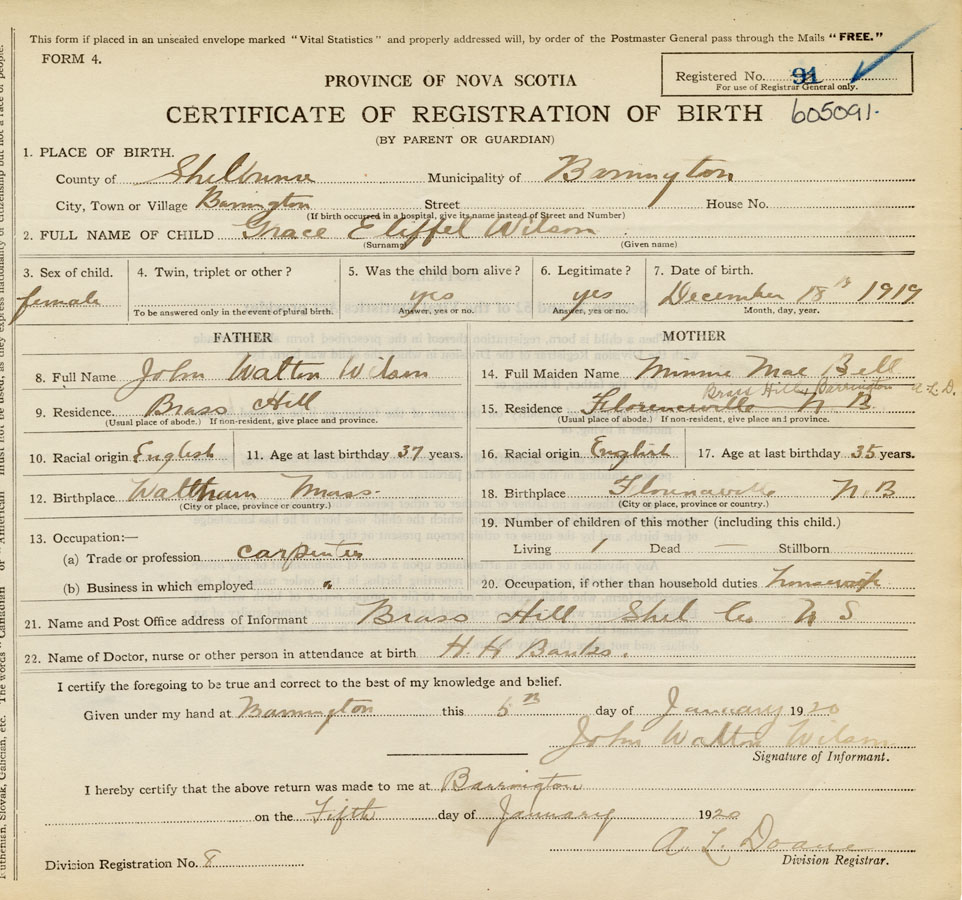 This form if placed in an unsealed envelope marked "Vital Statistics" and properly addressed will, by order of the Postmaster General pass through the Mails "FREE."
FORM 4.
Registered No. 91
For use of Registrar General only.
PROVINCE OF NOVA SCOTIA
CERTIFICATE OF REGISTRATION OF BIRTH 605091.
(BY PARENT OR GUARDIAN)
1. PLACE OF BIRTH.
County of Shelburne Municipality of Barrington
City, Town or Village Barrington Street House No.
(If birth occurred in a hospital, give its name instead of Street and Number)
2. FULL NAME OF CHILD Grace Wilson
(Surname) (Given name)
3. Sex of child. 4. Twin, triplet or other? 5. Was the child born alive? 6. Legitimate? 7. Date of birth.
female yes yes December 18th 1919
To be answered only in the event of plural birth. Answer, yes or no. Answer, yes or no. Month, day, year.
FATHER
8. Full Name John Walton Wilson
9. Residence Brass Hill
(Usual place of abode.) If non-resident, give place and province.
10. Racial origin English 11. Age at last birthday 37 years.
12. Birthplace Waltham Mass.
(City or place, province or country.)
13. Occupation:—
(a) Trade or profession carpenter
(b) Business in which employed
MOTHER
14. Full Maiden Name Minnie Mae Bell
Brass Hill, Barrington A.L.D.
15. Residence Florenceville N. B.
(Usual place of abode.) If non-resident, give place and province.
16. Racial origin English 17. Age at last birthday 35 years.
18. Birthplace Florenceville N.B
(City or place, province or country.)
19. Number of children of this mother (including this child.)
Living 1 Dead — Stillborn
20. Occupation, if other than household duties housewife
21. Name and Post Office address of Informant Brass Hill Shel Co N S
22. Name of Doctor, nurse or other person in attendance at birth H. H Banks.
I certify the foregoing to be true and correct to the best of my knowledge and belief.
Given under my hand at Barrington this 5th day of January 1920
John Walton Wilson
Signature of Informant.
I hereby certify that the above return was made to me at Barrington
on the Fifth day of January 1920
A. L. Doane
Division Registrar.
Division Registration No. 8